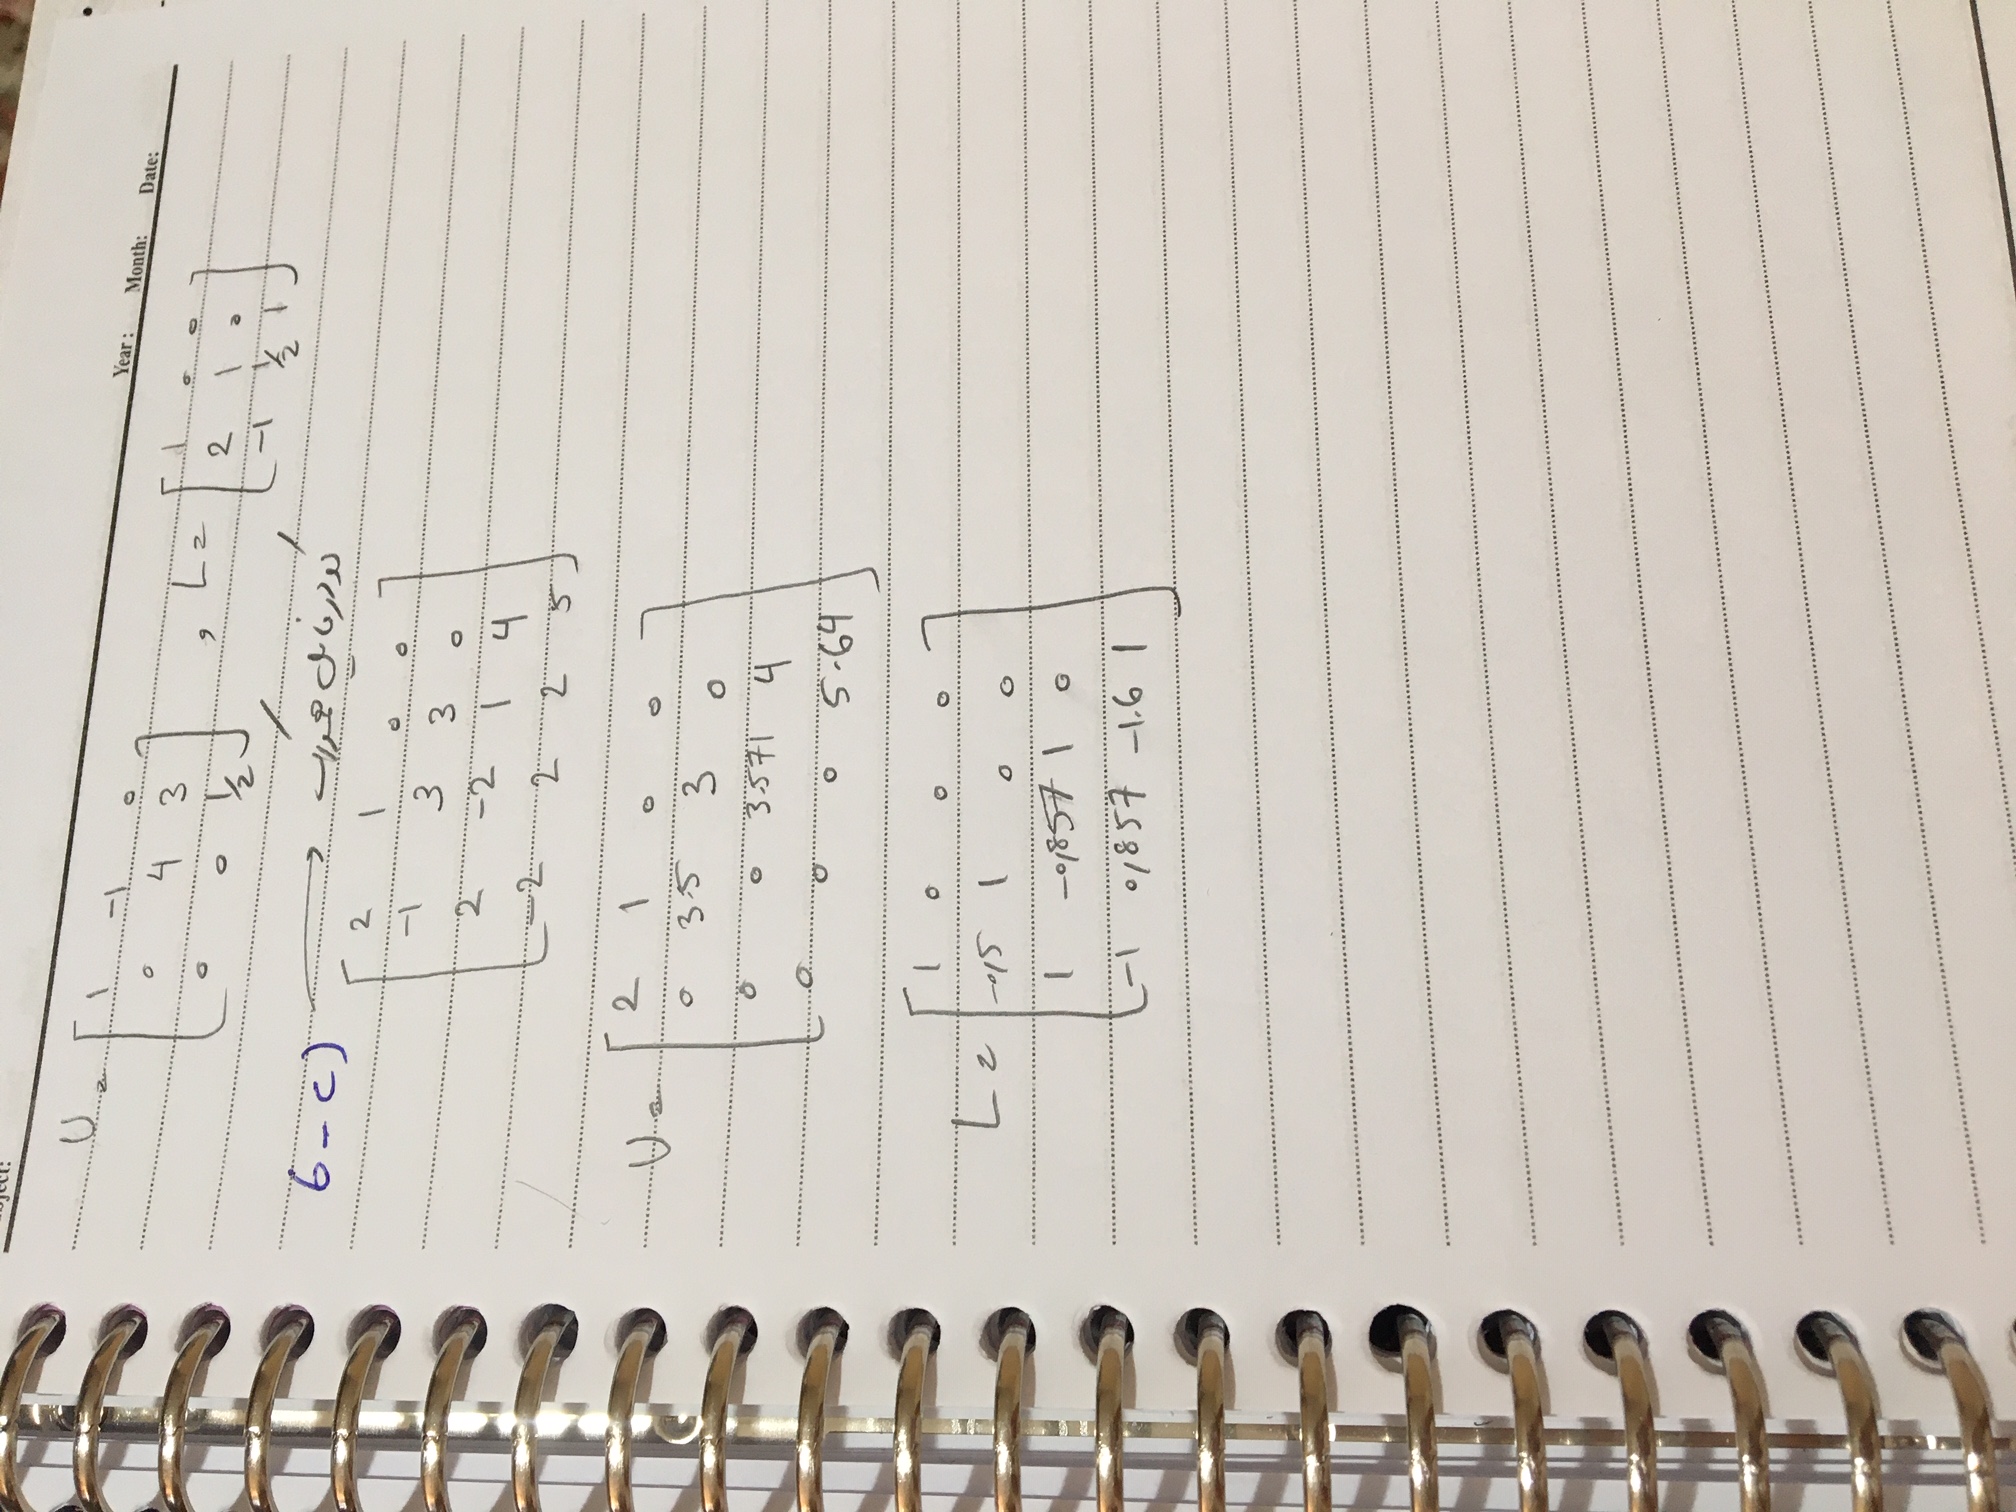 Year: Month: Date:
U = [ 1 -1 0
0 4 3
0 0 1/2 ] , L = [ 1 0 0
2 1 0
-1 1/2 1 ]
6-c) → کد در فایل
[ 2 1 0 0
-1 3 3 0
2 -2 1 4
-2 2 2 5 ]
U = [ 2 1 0 0
0 3.5 3 0
0 0 3.571 4
0 0 0 5.64 ]
L = [ 1 0 0 0
-0,5 1 0 0
1 -0,857 1 0
-1 0,857 -1.6 1 ]